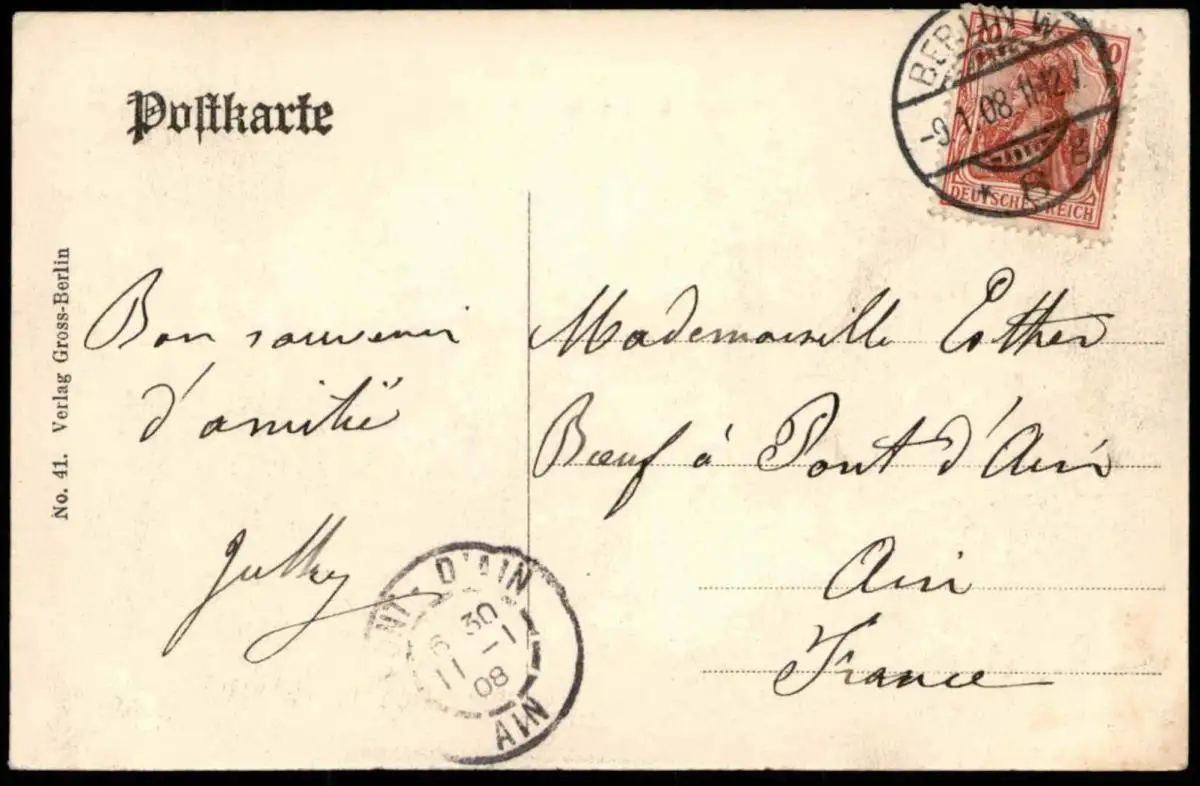 Postkarte
BERLIN W
-9.1.08.11-12V.
* 8 g
10
DEUTSCHES REICH
No. 41. Verlag Gross-Berlin
Bon souvenir
d'amitié
Mademoiselle Esther
Bœuf à Pont d'Ain
Ain
France
PONT-D'AIN
6 30
11 -1
08
AIN